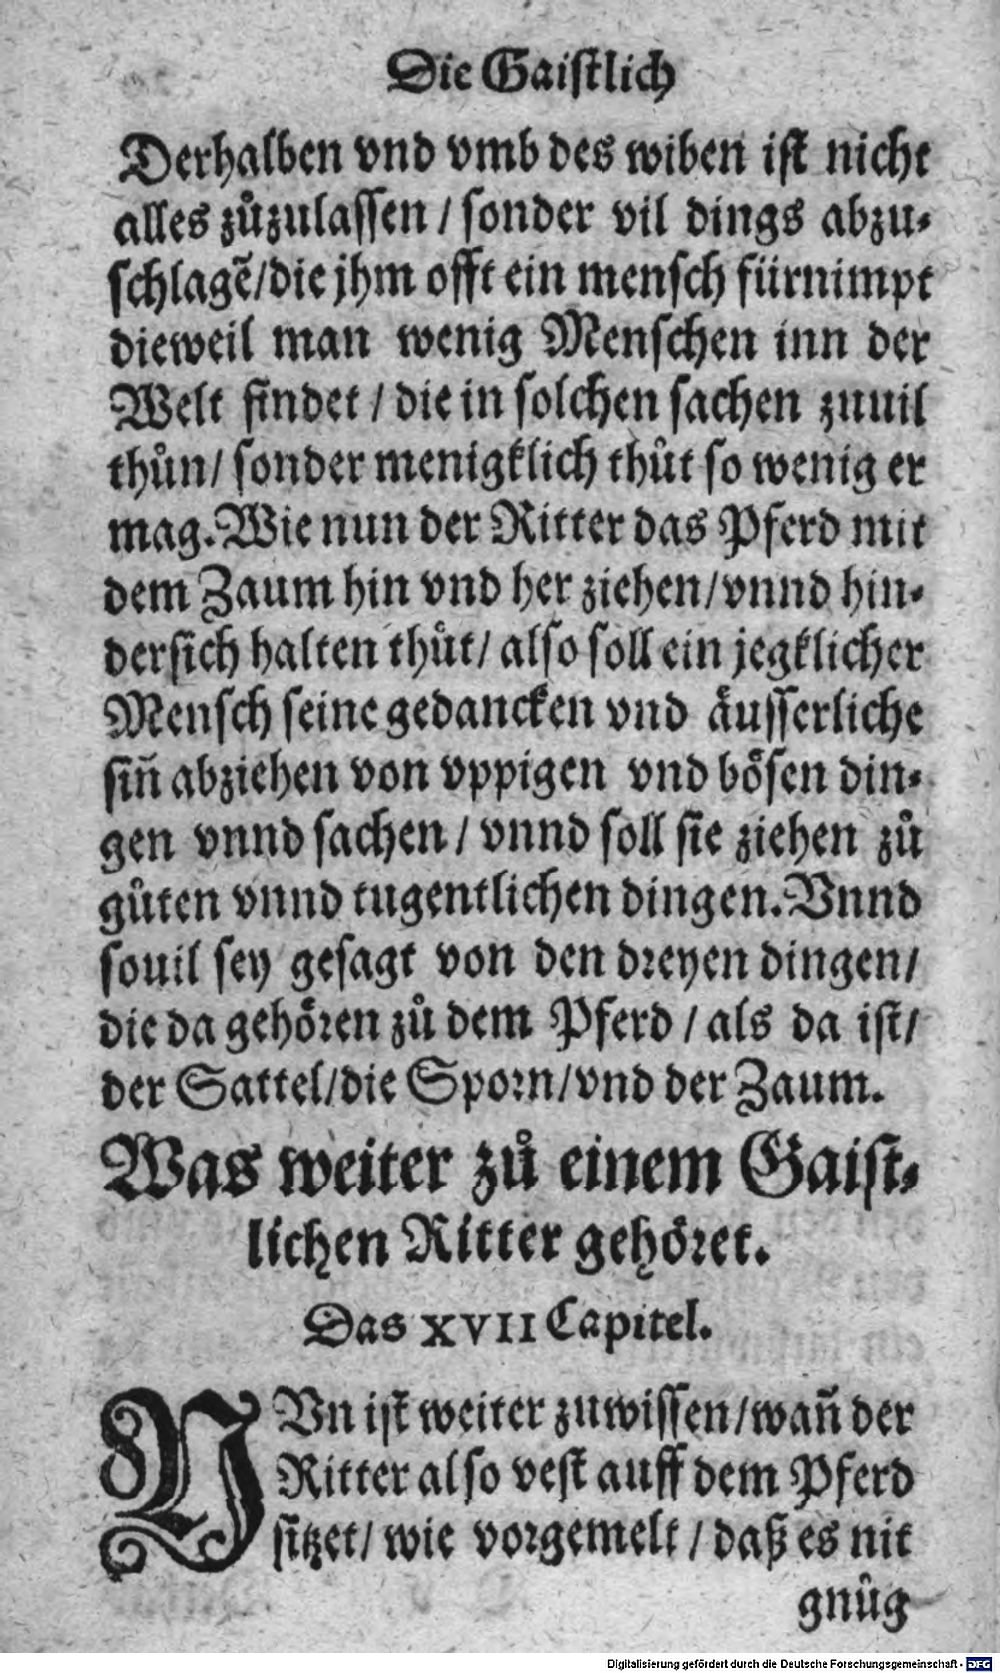 Die Gaistlich
Derhalben vnd vmb des wiben ist nicht
alles zůzulassen / sonder vil dings abzu⸗
schlagẽ/die jhm offt ein mensch fürnimpt
dieweil man wenig Menschen inn der
Welt findet / die in solchen sachen zuuil
thůn/ sonder menigklich thůt so wenig er
mag. Wie nun der Ritter das Pferd mit
dem Zaum hin vnd her ziehen/vnnd hin⸗
dersich halten thůt/ also soll ein jegklicher
Mensch seine gedancken vnd äusserliche
siñ abziehen von vppigen vnd bösen din⸗
gen vnnd sachen / vnnd soll sie ziehen zů
gůten vnnd tugentlichen dingen. Vnnd
souil sey gesagt von den dreyen dingen/
die da gehören zů dem Pferd / als da ist/
der Sattel/die Sporn/vnd der Zaum.
Was weiter zů einem Gaist⸗
lichen Ritter gehöret.
Das XVII Capitel.
NVn ist weiter zuwissen/wañ der
Ritter also vest auff dem Pferd
sitzet/ wie vorgemelt / daß es nit
gnůg
Digitalisierung gefördert durch die Deutsche Forschungsgemeinschaft - DFG